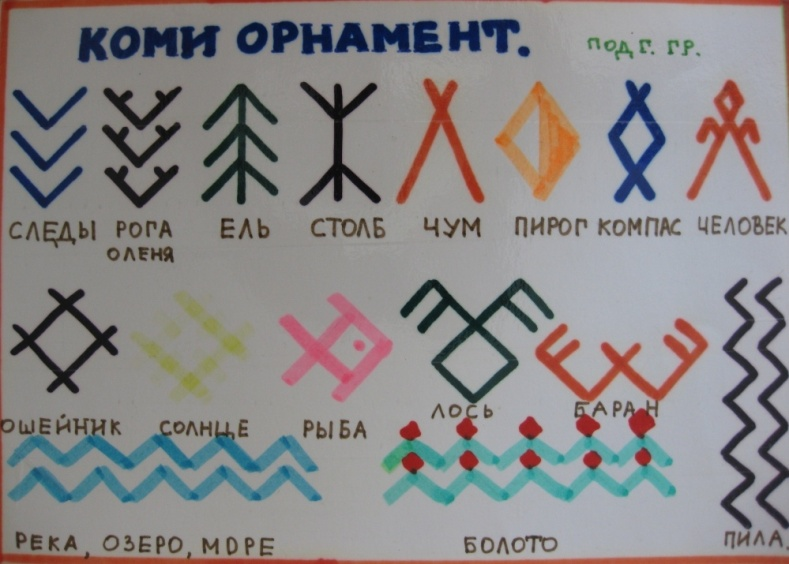 КОМИ ОРНАМЕНТ.
ПОД Г. ГР.
СЛЕДЫ РОГА ОЛЕНЯ ЕЛЬ СТОЛБ ЧУМ ПИРОГ КОМПАС ЧЕЛОВЕК
ОШЕЙНИК СОЛНЦЕ РЫБА ЛОСЬ БАРАН
РЕКА, ОЗЕРО, МОРЕ БОЛОТО ПИЛА.